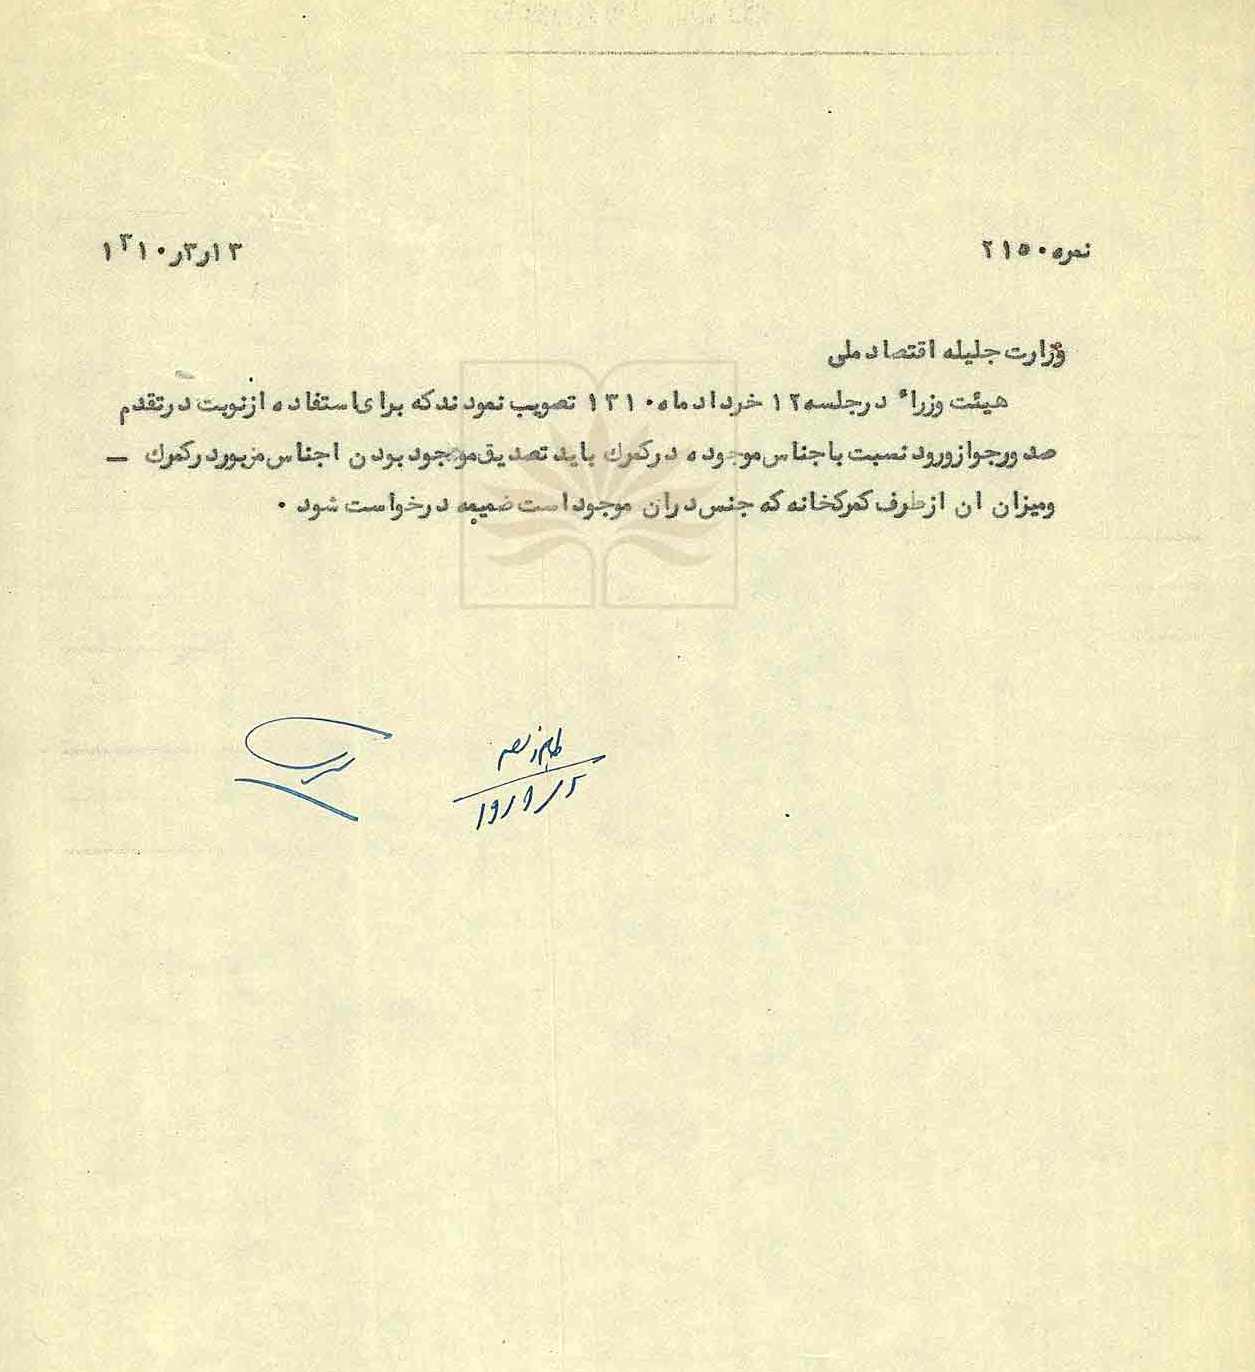 نمره ۲۱۵۰
۱۳ر۳ر۱۳۱۰
وزارت جلیله اقتصاد ملی
هیئت وزراء در جلسه ۱۲ خرداد ماه ۱۳۱۰ تصویب نمودند که برای استفاده از نوبت در تقدم
صدور جواز ورود نسبت باجناس موجوده در کمرك باید تصدیق موجود بودن اجناس مزبور در کمرك –
و میزان ان از طرف کمرکخانه که جنس دران موجود است ضمیمه درخواست شود .